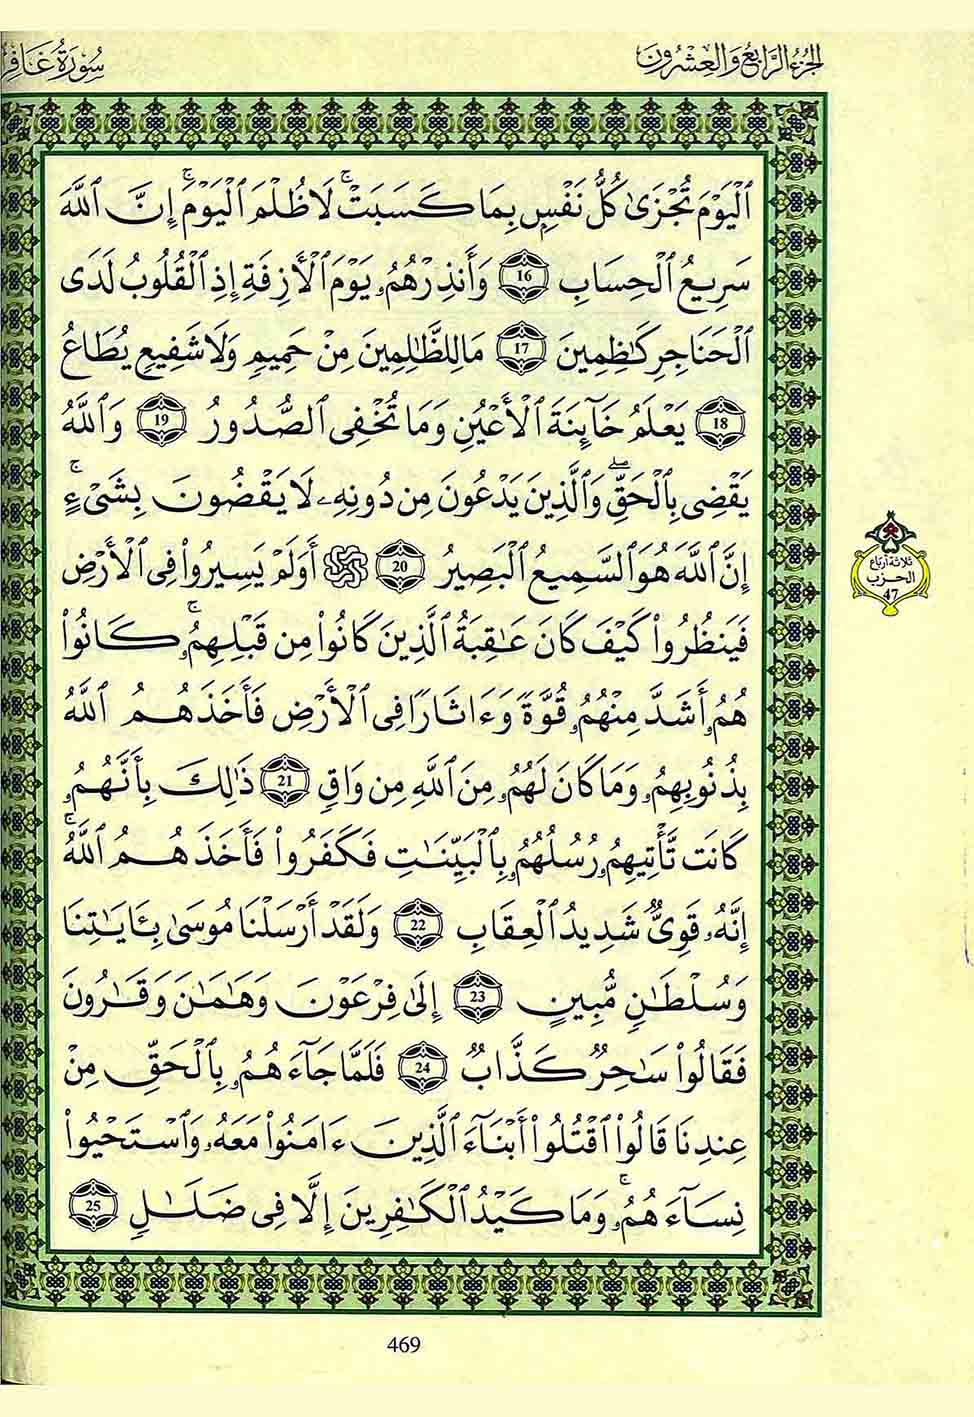 الجزء الرابع والعشرون
سورة غافر
ٱلۡيَوۡمَ تُجۡزَىٰ كُلُّ نَفۡسِۭ بِمَا كَسَبَتۡۚ لَا ظُلۡمَ ٱلۡيَوۡمَۚ إِنَّ ٱللَّهَ
سَرِيعُ ٱلۡحِسَابِ 16 وَأَنذِرۡهُمُۥ يَوۡمَ ٱلۡأٓزِفَةِ إِذِ ٱلۡقُلُوبُ لَدَى
ٱلۡحَنَاجِرِ كَٰظِمِينَ 17 مَا لِلظَّٰلِمِينَ مِنۡ حَمِيمٖ وَلَا شَفِيعٖ يُطَاعُ
18 يَعۡلَمُ خَآئِنَةَ ٱلۡأَعۡيُنِ وَمَا تُخۡفِى ٱلصُّدُورُ 19 وَٱللَّهُ
يَقۡضِى بِٱلۡحَقِّۖ وَٱلَّذِينَ يَدۡعُونَ مِن دُونِهِۦ لَا يَقۡضُونَ بِشَىۡءٍۚ
إِنَّ ٱللَّهَ هُوَ ٱلسَّمِيعُ ٱلۡبَصِيرُ 20 ۞ أَوَلَمۡ يَسِيرُواْ فِى ٱلۡأَرۡضِ
فَيَنظُرُواْ كَيۡفَ كَانَ عَٰقِبَةُ ٱلَّذِينَ كَانُواْ مِن قَبۡلِهِمُۥۚ كَانُواْ
هُمُۥ أَشَدَّ مِنۡهُمُۥ قُوَّةٗ وَءَاثَارٗا فِى ٱلۡأَرۡضِ فَأَخَذَهُمُ ٱللَّهُ
بِذُنُوبِهِمُۥ وَمَا كَانَ لَهُمُۥ مِنَ ٱللَّهِ مِن وَاقٖ 21 ذَٰلِكَ بِأَنَّهُمُۥ
كَانَت تَّأۡتِيهِمُۥ رُسُلُهُمُۥ بِٱلۡبَيِّنَٰتِ فَكَفَرُواْ فَأَخَذَهُمُ ٱللَّهُۚ
إِنَّهُۥ قَوِىّٞ شَدِيدُ ٱلۡعِقَابِ 22 وَلَقَدۡ أَرۡسَلۡنَا مُوسَىٰ بِـَٔايَٰتِنَا
وَسُلۡطَٰنٖ مُّبِينٍ 23 إِلَىٰ فِرۡعَوۡنَ وَهَٰمَٰنَ وَقَٰرُونَ
فَقَالُواْ سَٰحِرٞ كَذَّابٞ 24 فَلَمَّا جَآءَهُمُۥ بِٱلۡحَقِّ مِنۡ
عِندِنَا قَالُواْ ٱقۡتُلُوٓاْ أَبۡنَآءَ ٱلَّذِينَ ءَامَنُواْ مَعَهُۥ وَٱسۡتَحۡيُواْ
نِسَآءَهُمُۥۚ وَمَا كَيۡدُ ٱلۡكَٰفِرِينَ إِلَّا فِى ضَلَٰلٖ 25
ثلاثة أرباع
الحزب
47
469